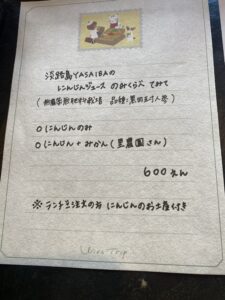 淡路島YASAIBAの
にんじんジュース のみくらべ てみて
(無農薬無肥料栽培 品種:黒田五寸人参)
○にんじんのみ
○にんじん+みかん(里農園さん)
600えん
※ランチ注文の方 にんじんのお土産付き